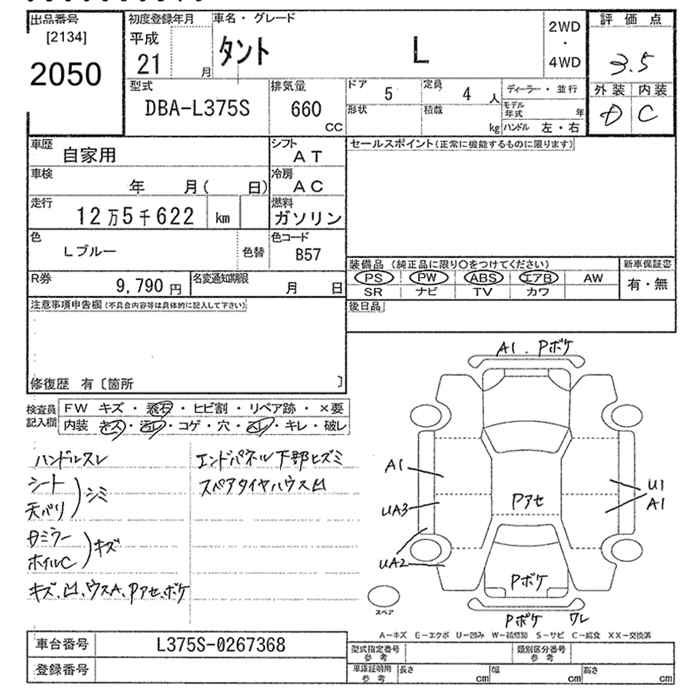 出品番号
[2134]
2050
初度登録年月
平成
21
月
車名・グレード
タント L
2WD
・
4WD
評価点
3.5
外装 内装
D C
型式
DBA-L375S
排気量
660
CC
ドア
5
定員
4 人
形状
積載
kg
ディーラー・並行
モデル年式 年
ハンドル 左・右
車歴
自家用
シフト
AT
車検
年 月( 日)
冷房
AC
走行
12万5千622 km
燃料
ガソリン
色
Lブルー
色替
色コード
B57
R券
9,790円
名変通知期限
月 日
セールスポイント(正常に機能するものに限ります)
装備品 (純正品に限り○をつけてください)
PS PW ABS エアB AW
SR ナビ TV カワ
新車保証書
有・無
後日品
注意事項申告欄(不具合内容等は具体的に記入して下さい)
修復歴 有〔箇所 〕
検査員記入欄
FW キズ・飛石・ヒビ割・リペア跡・×要
内装 キズ・汚レ・コゲ・穴・スレ・キレ・破レ
ハンドルスレ
シート
天バリ
シミ
Dミラー
ホイルC
キズ
キズ、凹、ウスA、Pアセ、ボケ
エンドパネル下部ヒズミ
スペアタイヤハウス凹
A1. Pボケ
A1
UA3
UA2
Pアセ
U1
A1
Pボケ
Pボケ ワレ
スペア
A−キズ E−エクボ U−凹み W−補修跡 S−サビ C−腐食 XX−交換済
車台番号 L375S-0267368
登録番号
型式指定番号
参考
類別区分番号
参考
車庫証明用
参考
長さ cm
幅 cm
高さ cm